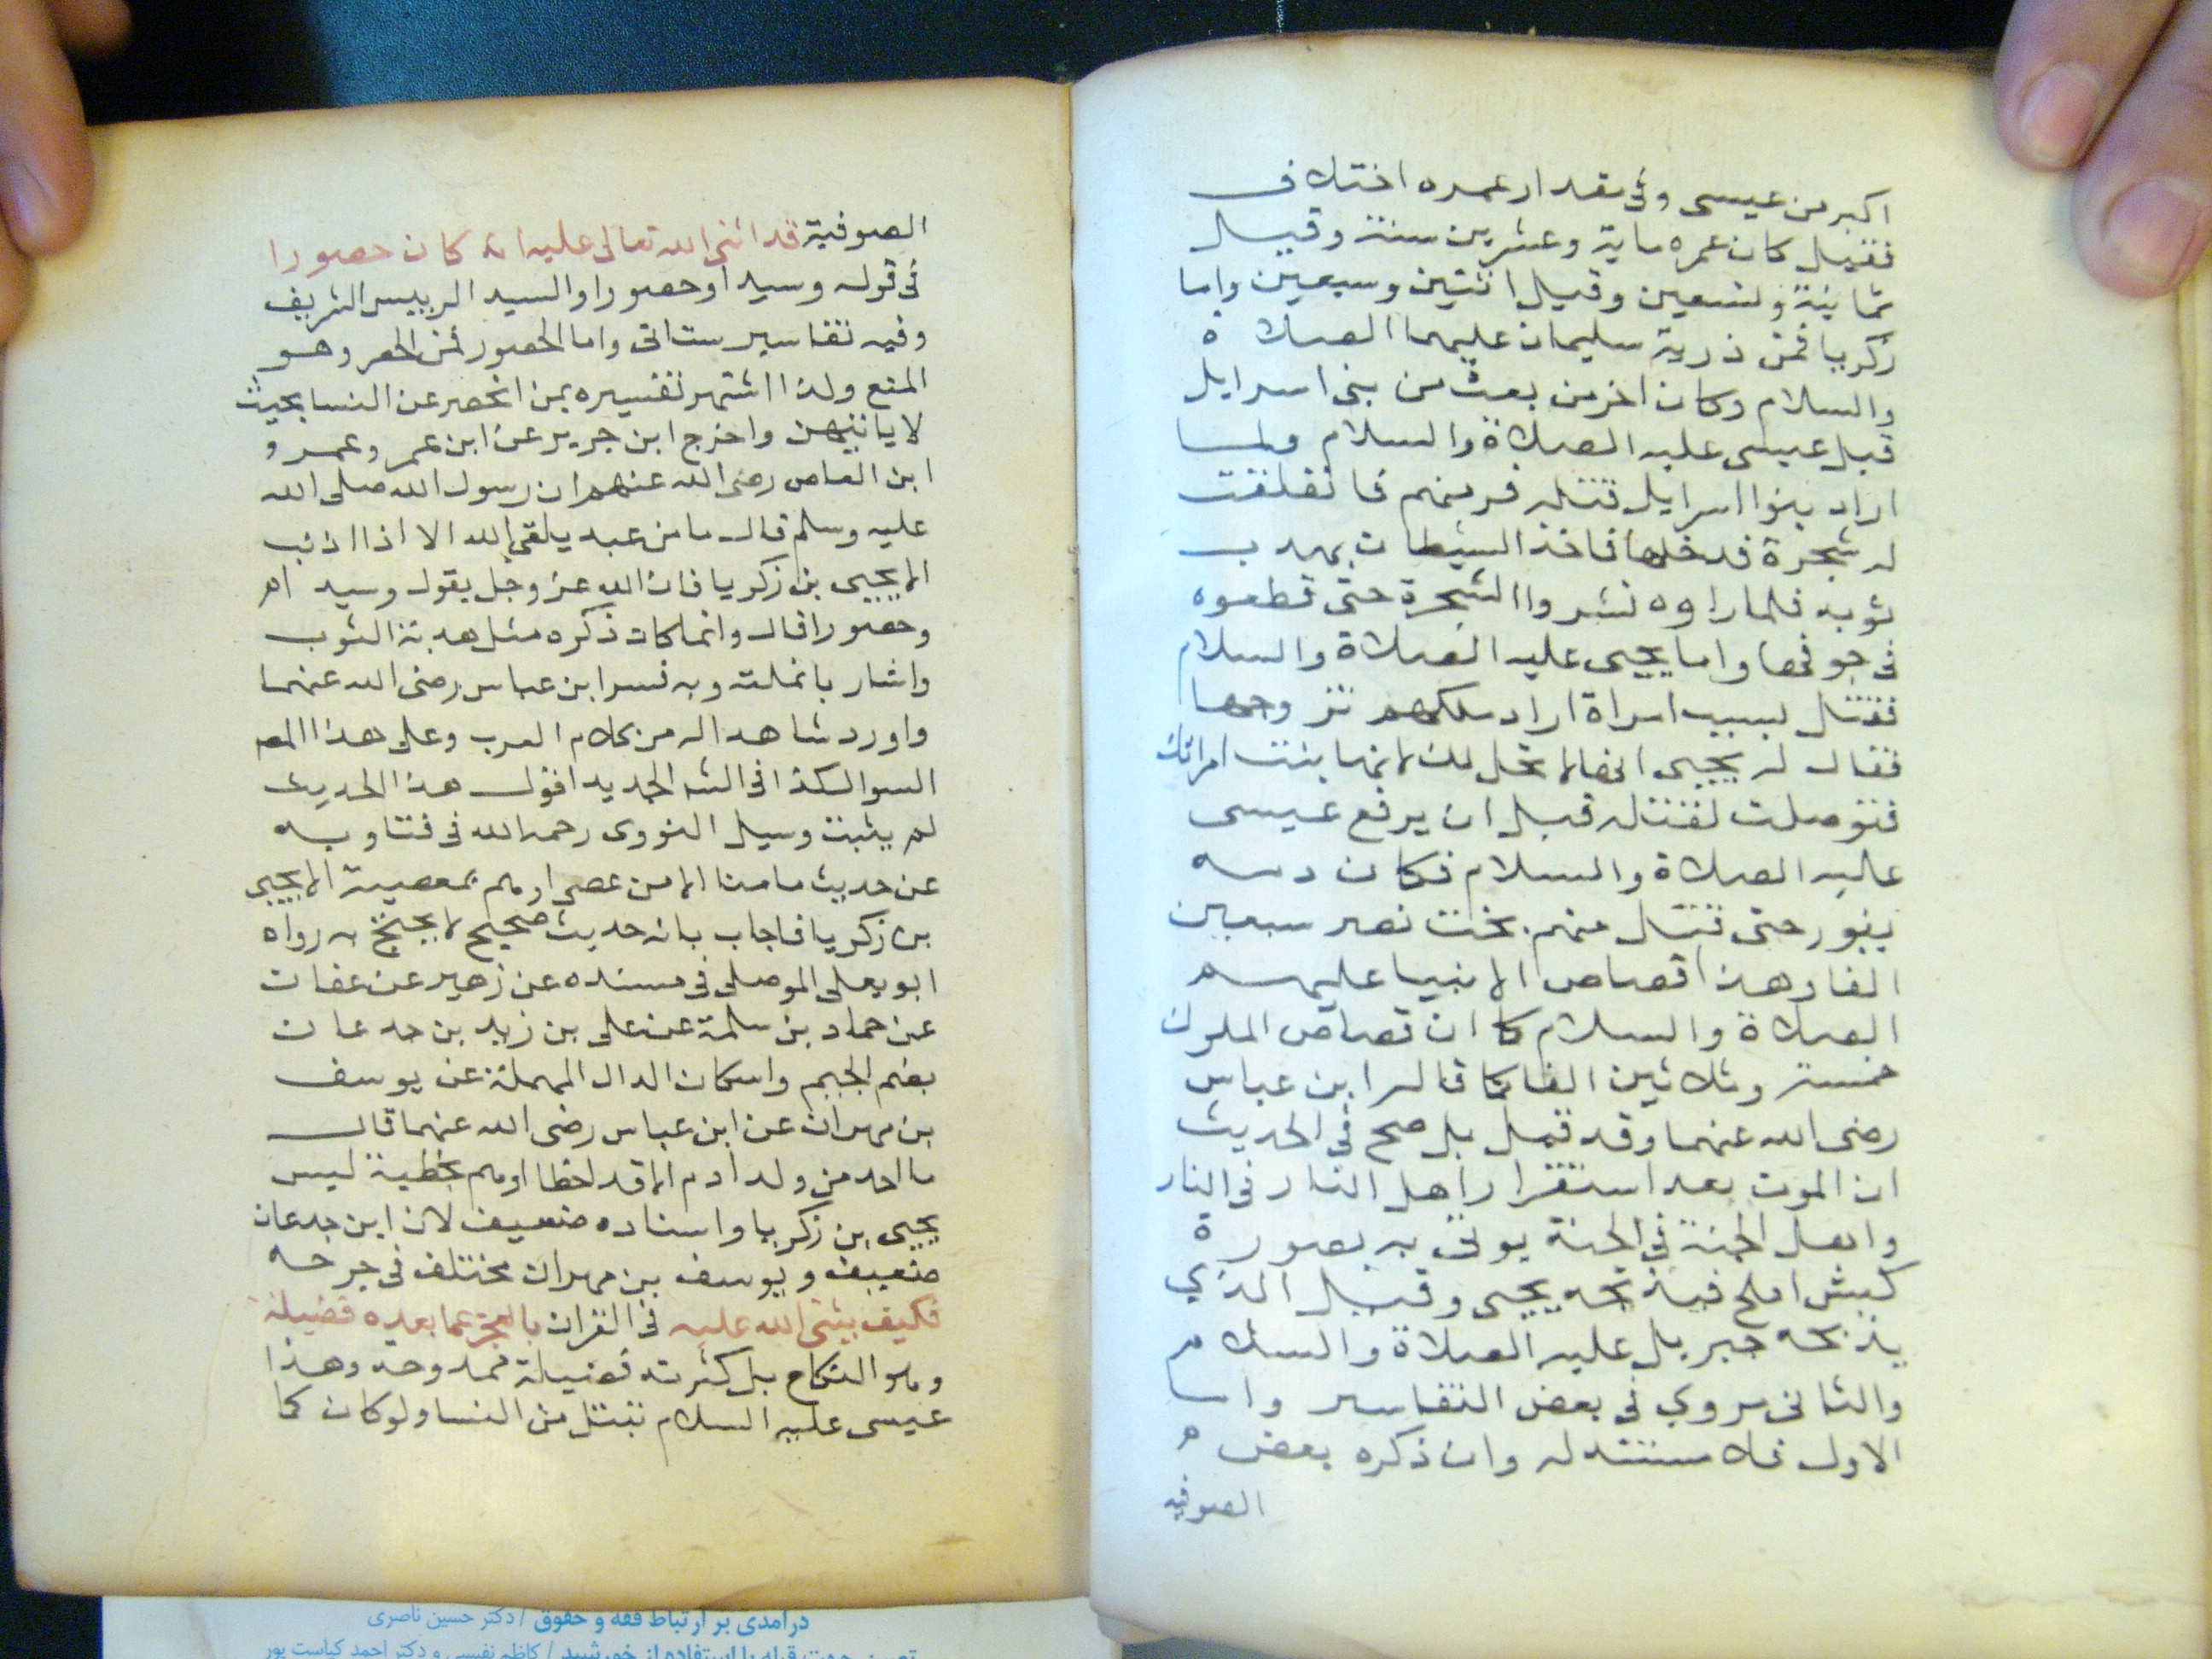 اكبر من عيسى وفي مقدار عمره اختلاف
فقيل كان عمره ماية وعشرين سنة وقيل
ثمانية وتسعين وقيل اثنتين وسبعين واما
زكريا فمن ذرية سليمان عليهما الصلاة
والسلام وكان اخر من بعث من بني اسرايل
قبل عيسى عليه الصلاة والسلام ولما
اراد بنوا اسرايل قتله فر منهم فانفلقت
له شجرة فدخلها فاخذ الشيطان بهدب
ثوبه فلما راوه نشروا الشجرة حتى قطعوه
في جوفها واما يحيى عليه الصلاة والسلام
فقتل بسبب امراة اراد ملكهم تزوجها
فقال له يحيى انها لا تحل لك لانها بنت امراتك
فتوصلت لقتله قبل ان يرفع عيسى
عليه الصلاة والسلام فكان دمه
يفور حتى قتل منهم بخت نصر سبعين
الفا وهذا قصاص الانبيا عليهم
الصلاة والسلام كما ان قصاص الملوك
خمسة وثلاثين الفا كما قاله ابن عباس
رضى الله عنهما وقد قيل بل صح في الحديث
ان الموت بعد استقرار اهل النار في النار
واهل الجنة في الجنة يوتى به بصورة
كبش املح فيذبحه يحيى وقيل الذي
يذبحه جبريل عليه الصلاة والسلام
والثاني مروي في بعض التفاسير واما
الاول فلا سند له وان ذكره بعض
الصوفيه
الصوفية قد اثنى الله تعالى عليه انه كان حصورا
في قوله وسيدا وحصورا والسيد الرييس الشريف
وفيه تفاسير ستاتى واما الحصور فمن الحصر وهو
المنع ولذا اشتهر تفسيره بمن انحصر عن النسا بحيث
لا ياتيهن واخرج ابن جرير عن ابن عمر وعمرو
ابن العاص رضى الله عنهم ان رسول الله صلى الله
عليه وسلم قال ما من عبد يلقى الله الا اذا اذنب
الا يحيى بن زكريا فان الله عز وجل يقول وسيدا
وحصورا قال وانما كان ذكره مثل هدبة الثوب
واشار بانملته وبه فسر ابن عباس رضى الله عنهما
واورد شاهدا له من كلام العرب وعلى هذا المعـ
السوال كذا في الشه الجديد اقول هذا الحديث
لم يثبت وسيل النووى رحمه الله في فتاويه
عن حديث ما منا الا من عصى او هم بمعصية الا يحيى
بن زكريا فاجاب بانه حديث صحيح لا يحتج به رواه
ابو يعلى الموصلى في مسنده عن زهير عن عفان
عن حماد بن سلمة عن على بن زيد بن جدعان
بضم الجيم واسكان الدال المهملة عن يوسف
بن مهران عن ابن عباس رضى الله عنهما قال
ما احد من ولد ادم الا قد اخطا او هم بخطية ليس
يحيى بن زكريا واسناده ضعيف لان ابن جدعان
ضعيف ويوسف بن مهران مختلف في جرحه
فكيف يثنى الله عليه في القران بالعجز عما يعده فضيلة
وهو النكاح بل كثرته فضيلة ممدوحة وهذا
عيسى عليه السلام تبتل من النسا ولو كان كما
درآمدی بر ارتباط فقه و حقوق / دکتر حسین ناصری
تعیین جهت قبله با استفاده از خورشید / کاظم نفیسی و دکتر احمد کیاست پور